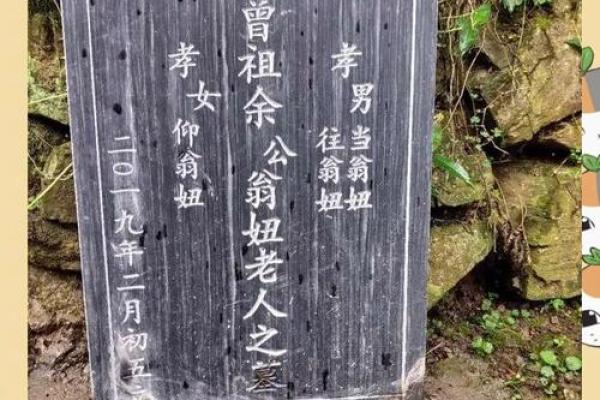 孝男当翁妞
往翁妞
曾祖余公翁妞老人之墓
孝女仰翁妞
二〇一九年二月初五